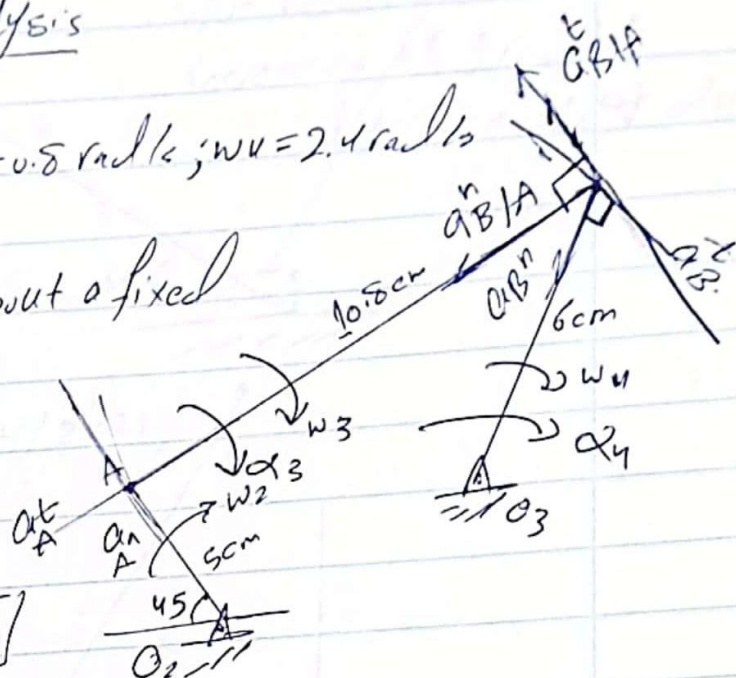 ysis
0.8 rad/s ; w4 = 2.4 rad/s
out a fixed
a^t B/A
a^n B/A
a^n B
a^t B
10.8cm
6cm
w4
α4
w3
α3
w2
A
a^t A
a^n A
5cm
45
O3
O2
]